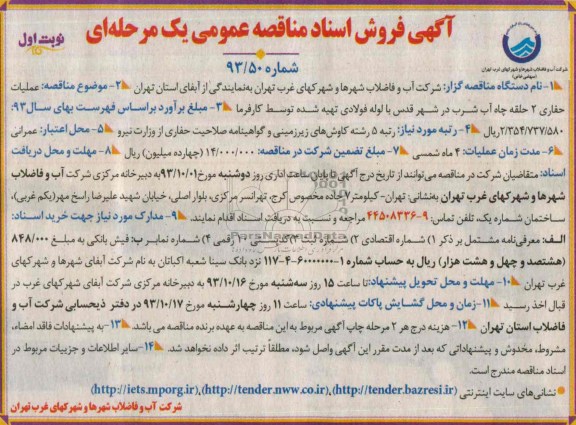 آگهی فروش اسناد مناقصه عمومی یک مرحله‌ای
نوبت اول
شماره ۹۳/۵۰
شرکت آب و فاضلاب شهرها و شهرکهای غرب تهران
(سهامی خاص)
۱-نام دستگاه مناقصه گزار: شرکت آب و فاضلاب شهرها و شهرکهای غرب تهران به‌نمایندگی از آبفای استان تهران ۲-موضوع مناقصه: عملیات
حفاری ۲ حلقه چاه آب شرب در شهر قدس با لوله فولادی تهیه شده توسط کارفرما ۳-مبلغ برآورد براساس فهرست بهای سال۹۳:
۲/۳۵۴/۷۳۷/۵۸۰ریال ۴-رتبه مورد نیاز: رتبه ۵ رشته کاوش‌های زیرزمینی و گواهینامه صلاحیت حفاری از وزارت نیرو ۵-محل اعتبار: عمرانی
۶-مدت زمان عملیات: ۴ ماه شمسی ۷-مبلغ تضمین شرکت در مناقصه: ۱۴/۰۰۰/۰۰۰ (چهارده میلیون) ریال ۸-مهلت و محل دریافت
اسناد: متقاضیان شرکت در مناقصه می‌توانند از تاریخ درج آگهی تا پایان ساعت اداری روز دوشنبه مورخ ۹۳/۱۰/۰۱به دبیرخانه مرکزی شرکت آب و فاضلاب
شهرها و شهرکهای غرب تهران به‌نشانی: تهران-کیلومتر۷جاده مخصوص کرج، تهرانسر مرکزی، بلوار اصلی، خیابان شهید علیرضا راسخ مهر(یکم غربی)،
ساختمان شماره یک، تلفن تماس: ۹-۴۴۵۰۸۳۳۶ مراجعه و نسبت به دریافت اسناد اقدام نمایند. ۹-مدارک مورد نیاز جهت خرید اسناد:
الف: معرفی‌نامه مشتمل بر ذکر ۱) شماره اقتصادی ۲) شماره ثبت ۳) کدپستی ۱۰ رقمی ۴) شماره نمابر ب: فیش بانکی به مبلغ ۸۴۸/۰۰۰
(هشتصد و چهل و هشت هزار) ریال به حساب شماره ۱-۶۰۰۰۰۰۰-۴-۱۱۷ نزد بانک سینا شعبه اکباتان به نام شرکت آبفای شهرها و شهرکهای
غرب تهران ۱۰-مهلت و محل تحویل پیشنهاد:تا ساعت ۱۵ روز سه‌شنبه مورخ ۹۳/۱۰/۱۶ به دبیرخانه مرکزی شرکت آبفای شهرکهای غرب در
قبال اخذ رسید ۱۱-زمان و محل گشایش پاکات پیشنهادی: ساعت ۱۱ روز چهارشنبه مورخ ۹۳/۱۰/۱۷ در دفتر ذیحسابی شرکت آب و
فاضلاب استان تهران ۱۲-هزینه درج هر ۲ مرحله چاپ آگهی مربوط به این مناقصه به عهده برنده مناقصه می باشد. ۱۳-به پیشنهادات فاقد امضاء،
مشروط، مخدوش و پیشنهاداتی که بعد از مدت مقرر این آگهی واصل شود، مطلقاً ترتیب اثر داده نخواهد شد. ۱۴-سایر اطلاعات و جزییات مربوط در
اسناد مناقصه مندرج است.
نشانی‌های سایت اینترنتی (http://tender.bazresi.ir)، (http://tender.nww.co.ir)، (http://iets.mporg.ir)
شرکت آب و فاضلاب شهرها و شهرکهای غرب تهران